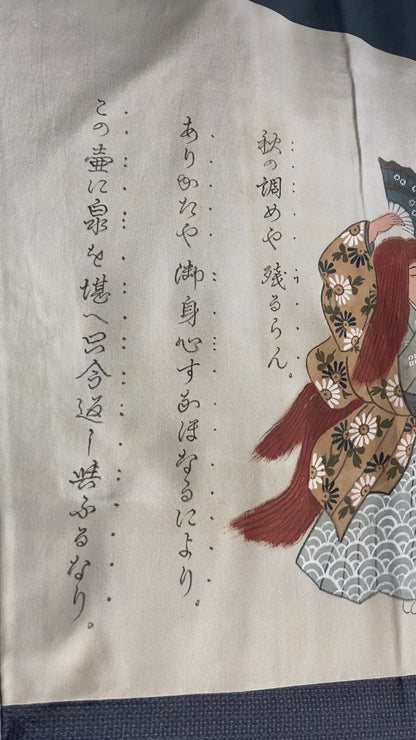 秋の調めや残るらん。
ありがたや御身心すなほなるにより。
この壷に泉を堪へ只今返し與ふるなり。